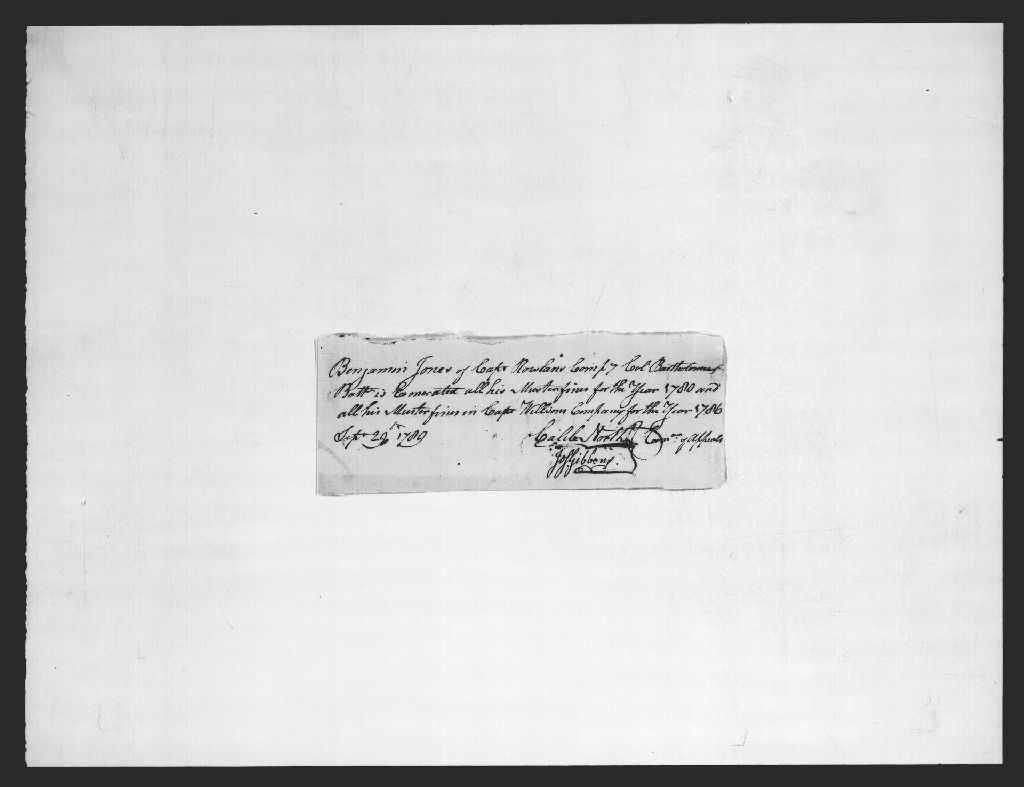 Benjamin Jones of Capt Rowlans Compy Col Bartholomew
Batt is Exonerated all his Musterfines for the Year 1780 and
all his Musterfines in Capt Willsons Company for the Year 1786
Sept 29th 1789 Caleb North Com of Appeals
Jos Gibbons